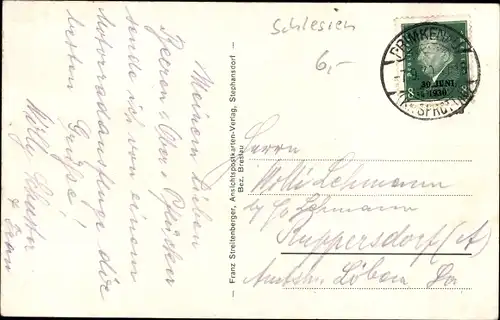 Schlesien
6,-
PRIMKENAU
30. JUNI
1930
8
Meinem lieben
Herren u. Ober-
sende ich von einem
Motorradausfluge die
besten Grüsse!
Willy Schuster
u. Frau
Franz Streitenberger, Ansichtspostkarten-Verlag, Stephansdorf
Bez. Breslau
Herrn
Willi Lehmann
Lehmann
Ruppersdorf (A)
Amtsh. Löbau Sa